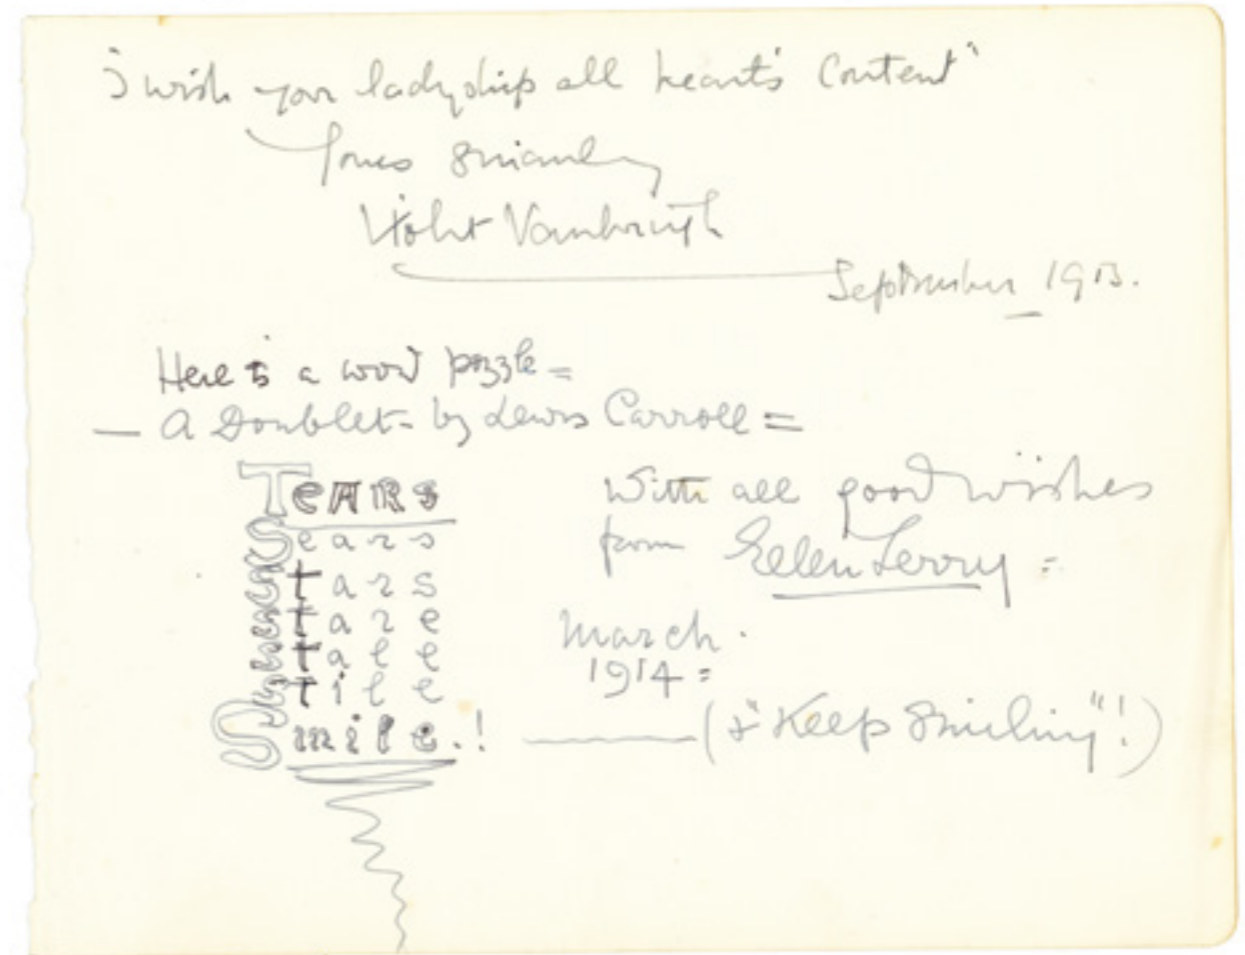 "I wish your ladyship all heart's content"
Yours Sincerely
Violet Vanbrugh
September 1913.
Here is a word puzzle =
— A Doublet - by Lewis Carroll =
Tears
Sears
Stars
Stare
Stale
Stile
Smile.!
With all good wishes
from Ellen Terry =
March.
1914 =
(& "Keep Smiling"!)